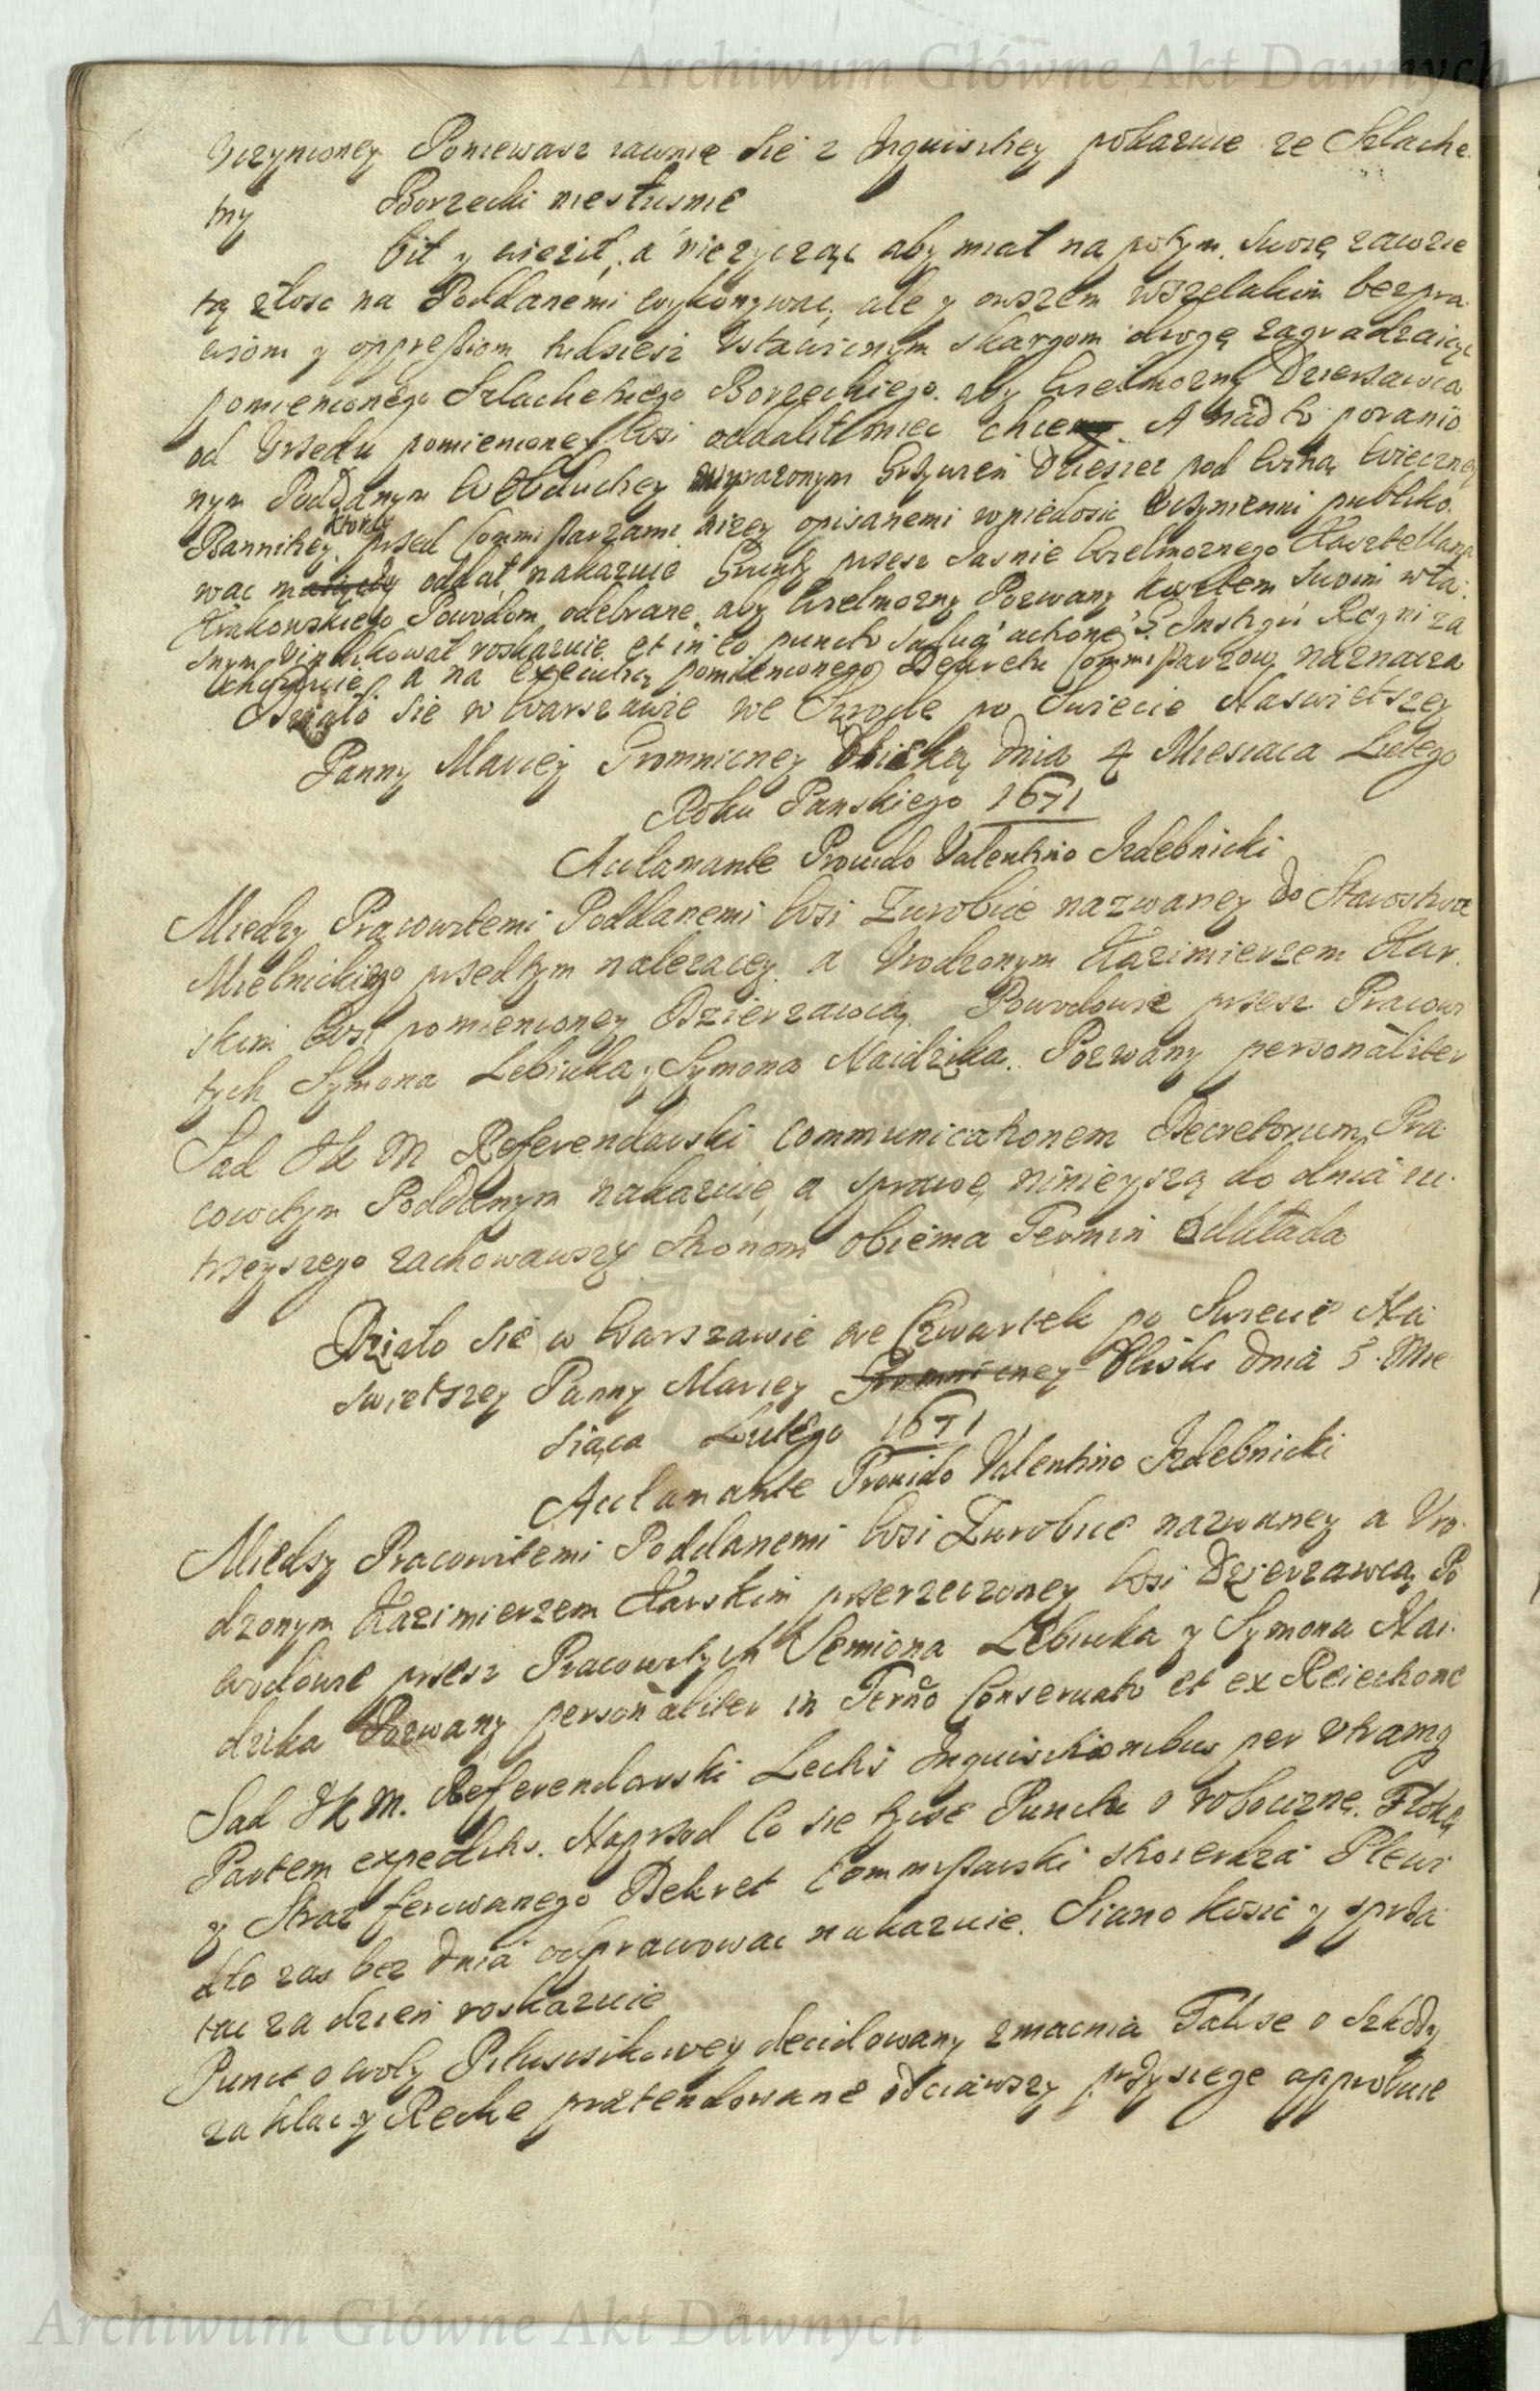 Archiwum Główne Akt Dawnych
Uczynioney Poniewasz iawnie sie z Inquisitiey pokazuie ze Szlache
tny Borzecki niesłusnie
bił y wieził, a niezycząc aby miał na potym swoię zawzie
tą złosc na Poddanemi wykonywac, ale y owszem wszelakim bezpra
wiom y oppressiom tudziesz ustawicznym skargom drogę zagradzaiąc
pomienionego Szlachetnego Borzeckiego aby Wielmozny Dzierzawca
od Urzedu pomienioney Wsi oddalił miec chce. A nad to poranio
nym Poddanym w Obductiey wyrazonym Grzywien Dziesiec pod winą wieczney
Bannitiey przed Commissarzami nizey opisanemi
ktore
wac oddał nakazuie Grunty przesz Jasnie Wielmoznego Kasztellana
Krakowskiego Powodom odebrane aby Wielmozny Pozwany kosztem swoim wła
snym windikował roskazuie et in eo puncto salua actione Instigri Regni za
chowuie, a na executią pomienionego Dekretu Commissarzow naznacza
Działo sie w Warszawie we Srode po Swiecie Naswietszey
Panny Mariey Gromniczney bliską dnia 4 Miesiaca Lutego
Roku Panskiego 1671
Acclamante Prouido Valentino Izdebnicki
Miedzy Pracowitemi Poddanemi Wsi Zurobice nazwaney do Starostwa
Mielnickiego przedtym nalezacey a Urodzonym Kazimierzem Kar
skim Wsi pomienioney Dzierzawcą. Powodowie przesz Pracowi
tych Symona Lebiuka y Symona Naidzika. Pozwany personaliter
Sad JK M Referendarski communicationem Decretorum Pra
cowitym Poddanym nakazuie, a sprawę ninieyszą do dnia iu
trzeyszego zachowawszy stronom obiema Termin odkłada
Działo sie w Warszawie we Czwartek po Swiecie Na
swietszey Panny Mariey Gromniczney bliski dnia 5. Mie
siąca Lutego 1671
Acclamante Prouido Valentino Izdebnicki
Miedzy Pracowitemi Poddanemi Wsi Zurobice nazwaney a Uro
dzonym Kazimierzem Karskim przerzeczoney Wsi Dzierzawcą Po
wodowie przesz Pracowitych Semiona Lebiuka y Symona Nai
dzika Pozwany personaliter in Termo Conseruato et ex Reiectione
Sad JK M. Referendarski Lectis Inquisitionibus per utramq
Partem expeditis. Naprzod co sie tycze Punctu o roboczne, Tłokę
y Straz ferowanego Dekret Commissarski stwierdza Plewi
dło zas bez dnia odprawowac nakazuie. Siano kosic y sprzą
tac za dzien roskazuie
Punct o woły decidowany zmacnia Takze o Szkody
za klacz y Reche prætendowane odciąwszy przysiege approbuie
Archiwum Główne Akt Dawnych